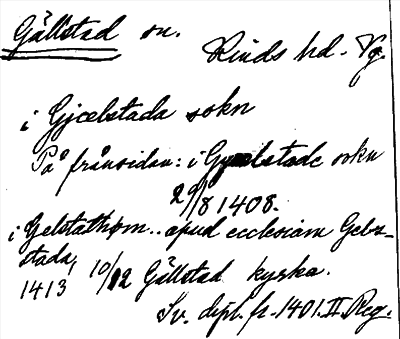 Gällstad sn. Kinds hd. Vg.
i Gjcelstada sokn
På frånsidan: i Gyælstade sokn
29/8 1408.
i Gelstathom.. apud ecclesiam Gels-
stada, 10/12 Gällstad kyrka.
1413
Sv. dipl. fr. 1401. II. Reg.